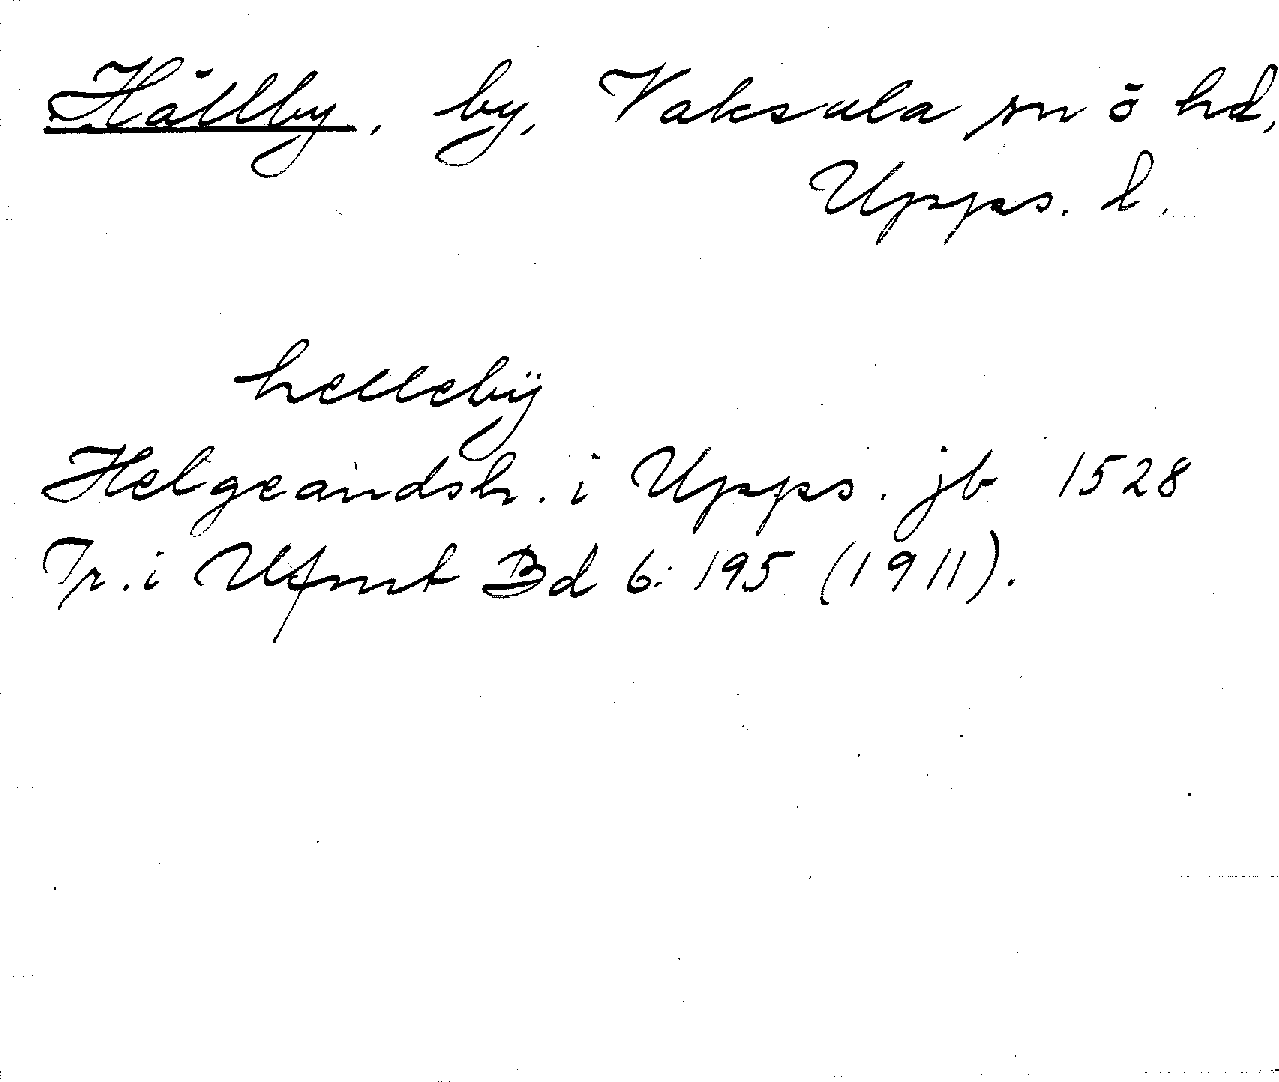 Hällby, by, Vaksala sn ö hd,
Upps. l.
hellebÿ
Helgeandsh. i Upps. jb 1528
Tr. i Ufmt Bd 6: 195 (1911).